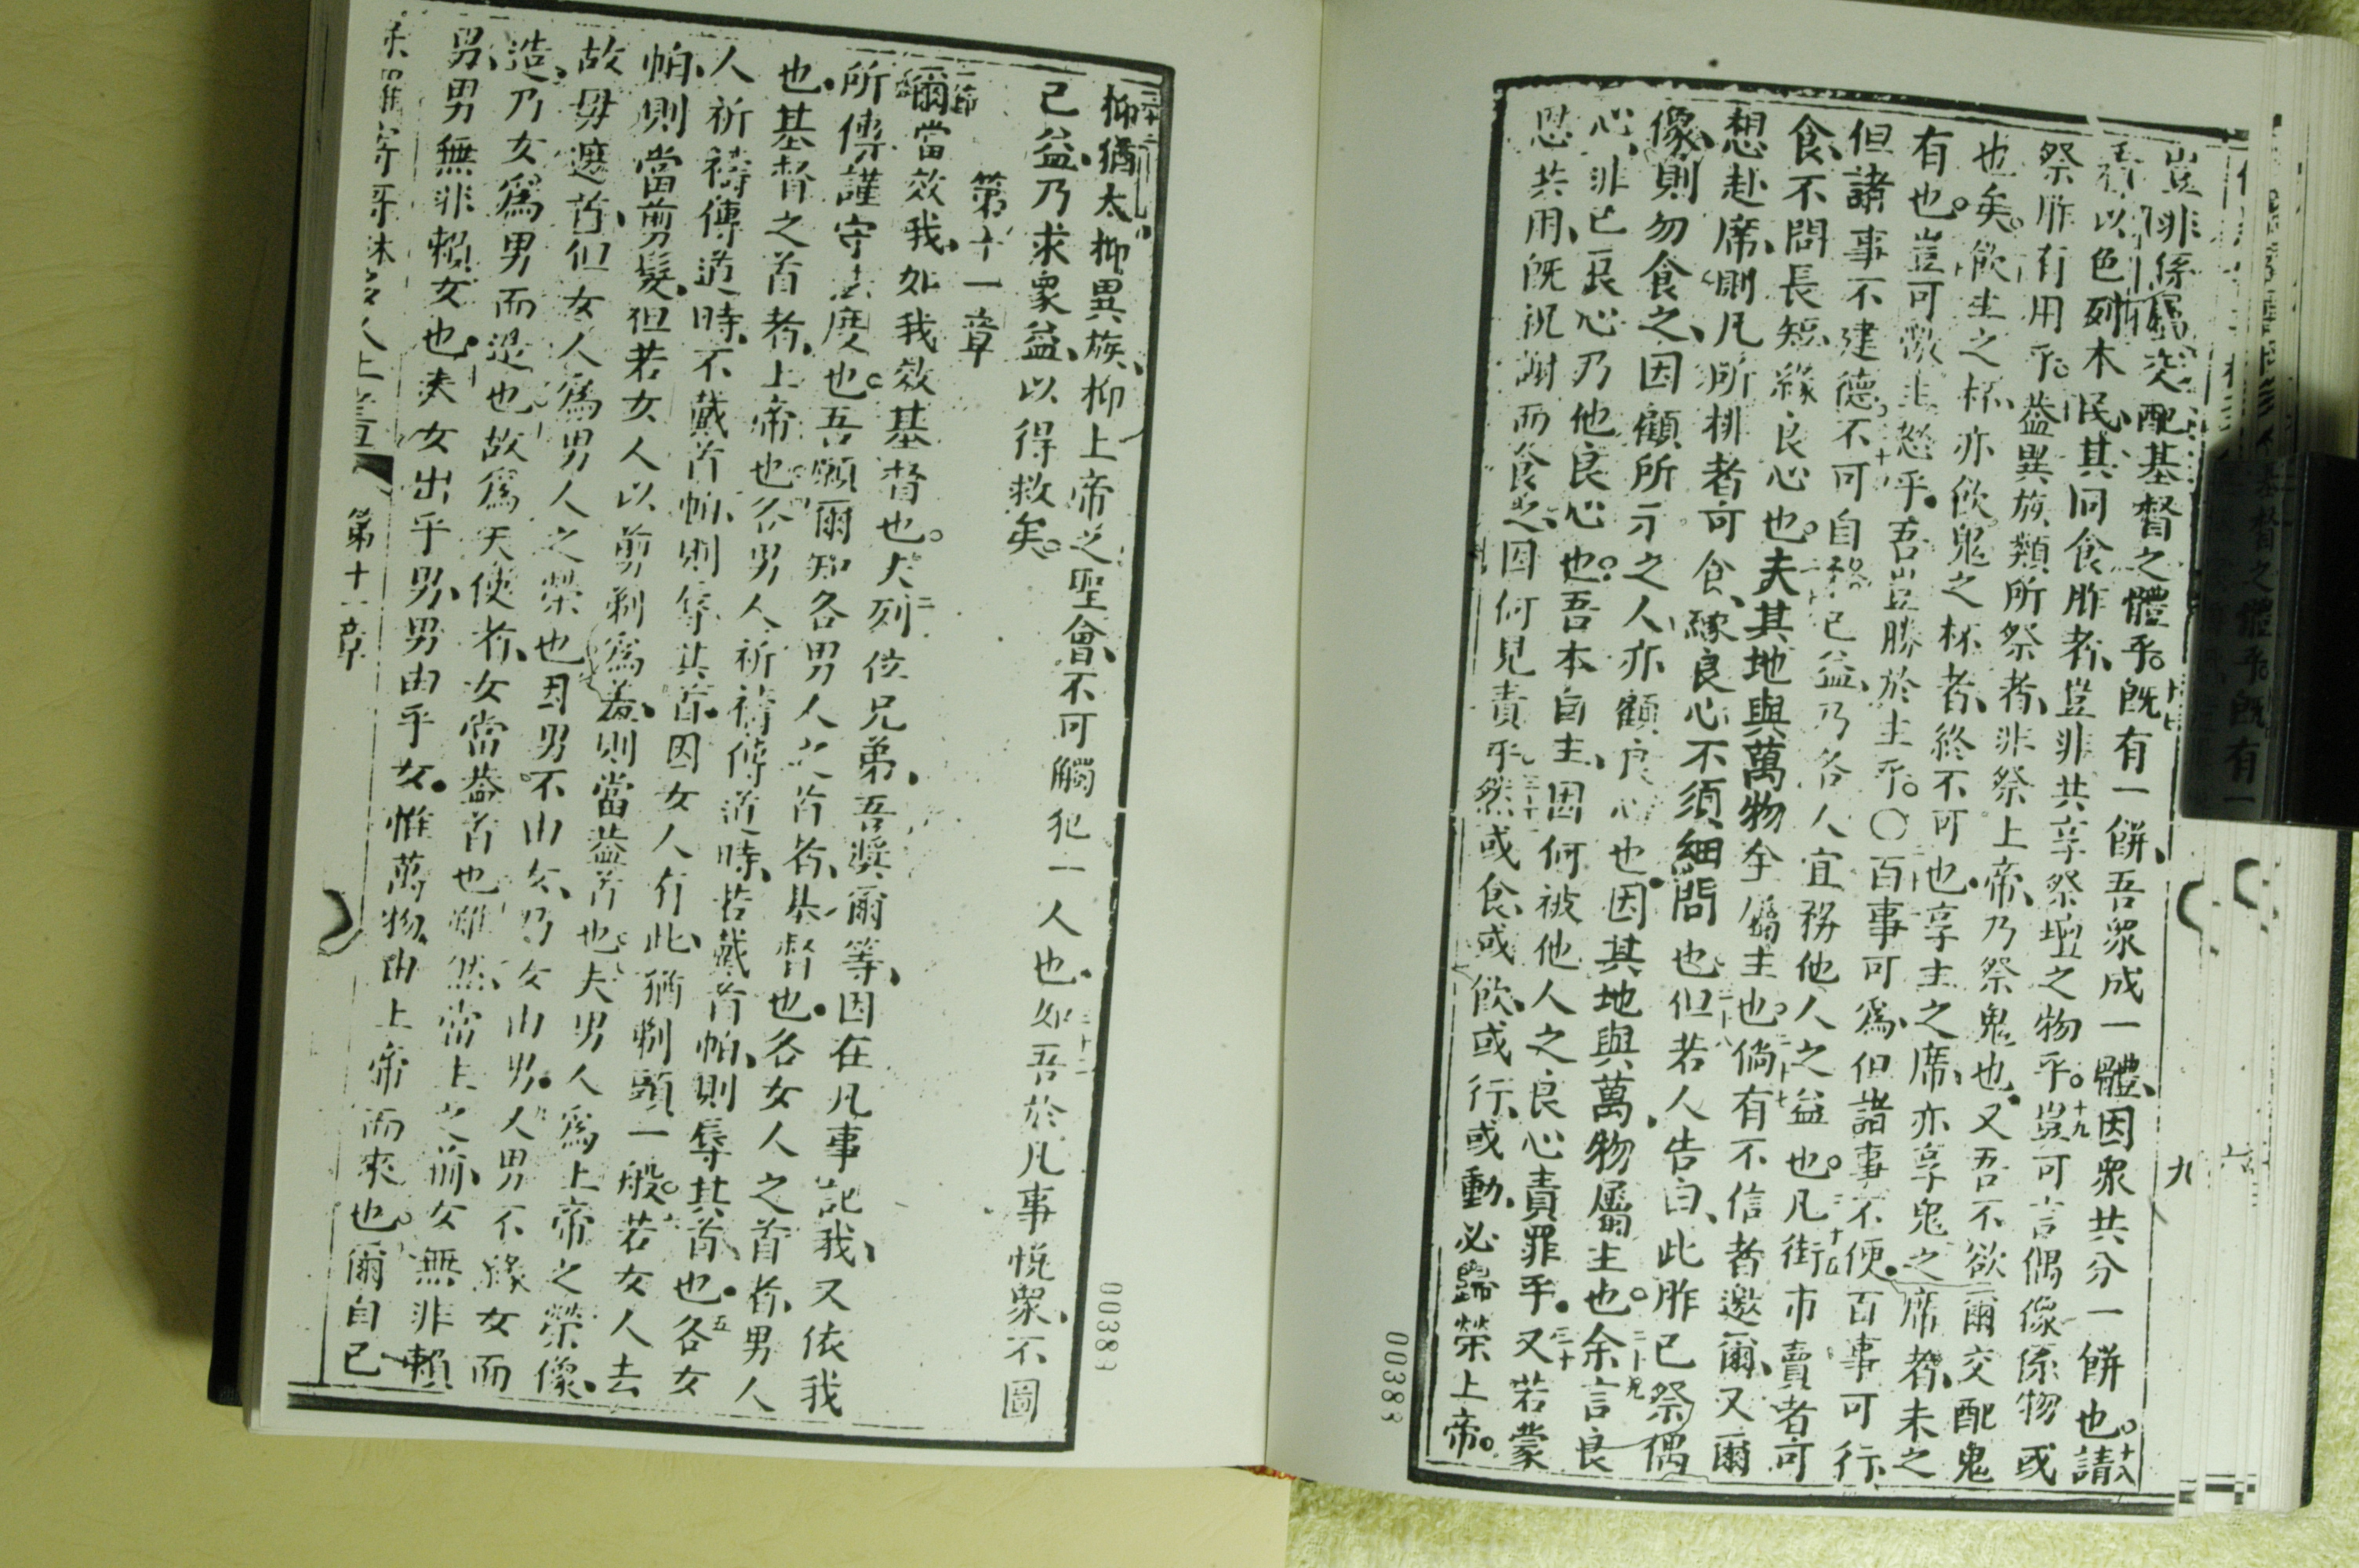 豈非係屬交配基督之體乎。既有一餅、吾眾成一體、因眾共分一餅也。請
看以色列木民、其同食胙者、豈非共享祭壇之物乎。豈可言偶像係物或
祭胙有用乎。蓋異族類所祭者、非祭上帝、乃祭鬼也、又吾不欲爾交配鬼
也矣。飲主之杯、亦飲鬼之杯者、終不可也、享主之席、亦享鬼之席者、未之
有也。豈可激主怒乎。吾豈勝於主乎。○百事可為、但諸事不便、百事可行、
但諸事不建德。不可自務己益、乃各人宜務他人之益也。凡街市賣者可
食、不問長短、緣良心也。夫其地與萬物全屬主也。倘有不信者邀爾、又爾
想赴席、則凡所排者可食、緣良心不須細問也、但若人告白、此胙已祭偶
像、則勿食之、因顧所示之人、亦顧良心也、因其地與萬物屬主也。余言良
心、非己良心乃他良心也。吾本自主、因何被他人之良心責罪乎。又若蒙
恩共用、既祝謝而食之、因何見責乎、然或食、或飲、或行、或動、必歸榮上帝。
九
00383
抑猶太、抑異族、抑上帝之聖會、不可觸犯一人也。如吾於凡事悅眾、不圖
己益、乃求眾益、以得救矣。
第十一章
爾當效我、如我效基督也。夫列位兄弟、吾獎爾等、因在凡事記我、又依我
所傳謹守法度也。吾願爾知各男人之首者、基督也。各女人之首者、男人
也。基督之首者、上帝也。各男人祈禱傳道時、若戴首帕、則辱其首也。各女
人祈禱傳道時、不戴首帕、則辱其首、因女人有此、猶剃頭一般。若女人去
帕、則當剪髮、但若女人以剪剃為羞、則當蓋首也。夫男人為上帝之榮像、
故毋遮首、但女人為男人之榮也。因男不由女、乃女由男。人男不緣女而
造、乃女為男而造也。故為天使者、女當蓋首也。雖然當主之前、女無非賴
男、男無非賴女也。夫女出乎男、男由乎女。惟萬物由上帝而來也。爾自己
第十一章
00383